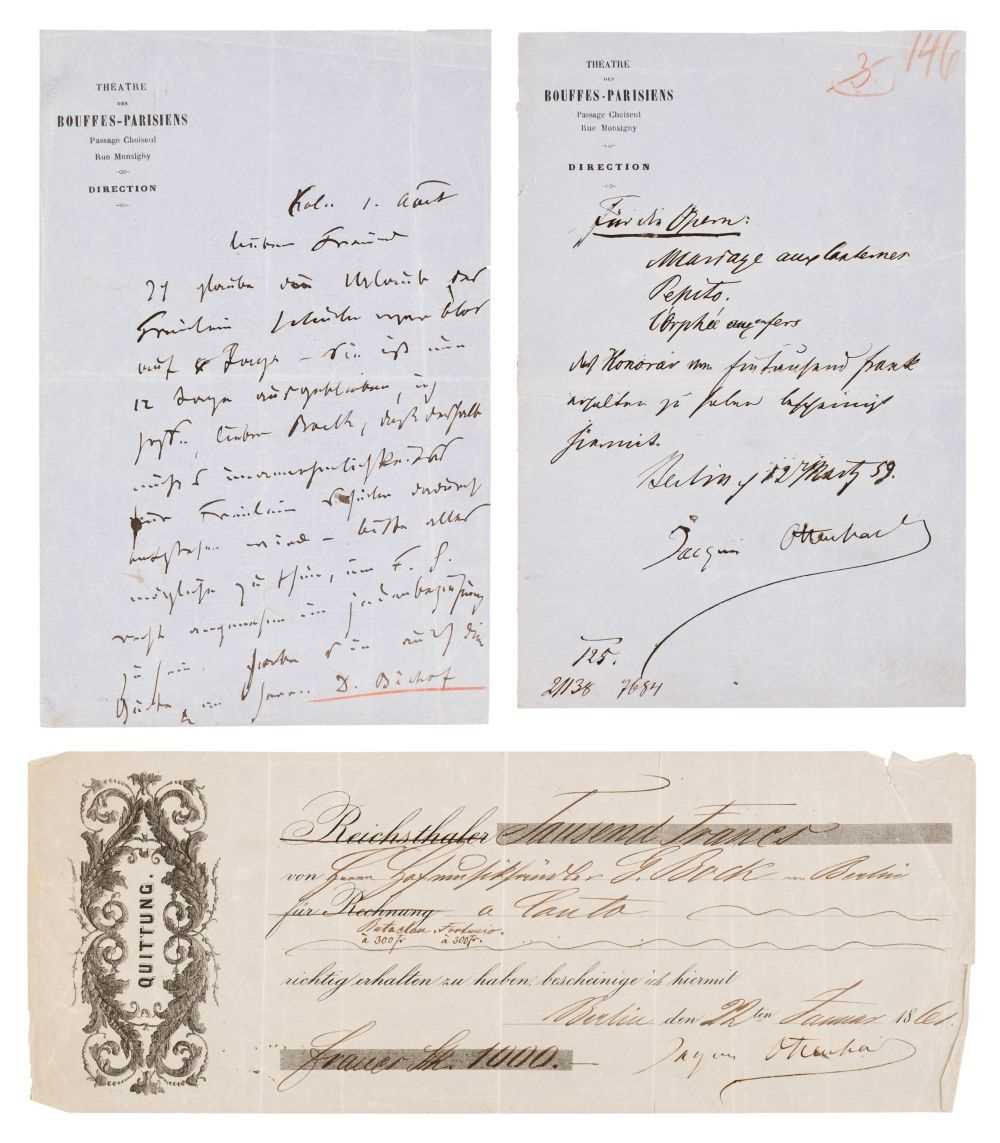 THÉATRE
DES
BOUFFES-PARISIENS
Passage Choiseul
Rue Monsigny
DIRECTION
1. Aout
lieber Freund
Ich glaube den Urlaub des
Fräulein war blos
auf 8 Tage – Sie ist nun
12 Tage ausgeblieben, ich
hoffe, lieber Bock, daß deshalb
nichts unannehmlichkeites
Fräulein dadurch
entstehen wird – bitte alles
mögliche zu thun, um F. S.
recht angenehm in jeder beziehung
zu sein. auch die
Güte Herrn D. Bischof
THÉATRE
DES
BOUFFES-PARISIENS
Passage Choiseul
Rue Monsigny
DIRECTION
3.
146
Für die Opern:
Mariage aux lanternes
Pepito.
Orphée aux enfers
das Honorar von Eintausend frank
erhalten zu haben bescheinigt
hiermit.
Berlin 12 Martz 59.
Jacques Offenbach
125.
21138 7684
QUITTUNG.
Reichsthaler Tausend Francs
von Herrn Hofmusikhändler G. Bock in Berlin
für Rechnung a Conto
Bataclan Fortunio
à 300 fr. à 300 fr.
richtig erhalten zu haben, bescheinige ich hiermit
Berlin den 22ten Januar 1861.
1000.
Jacques Offenbach